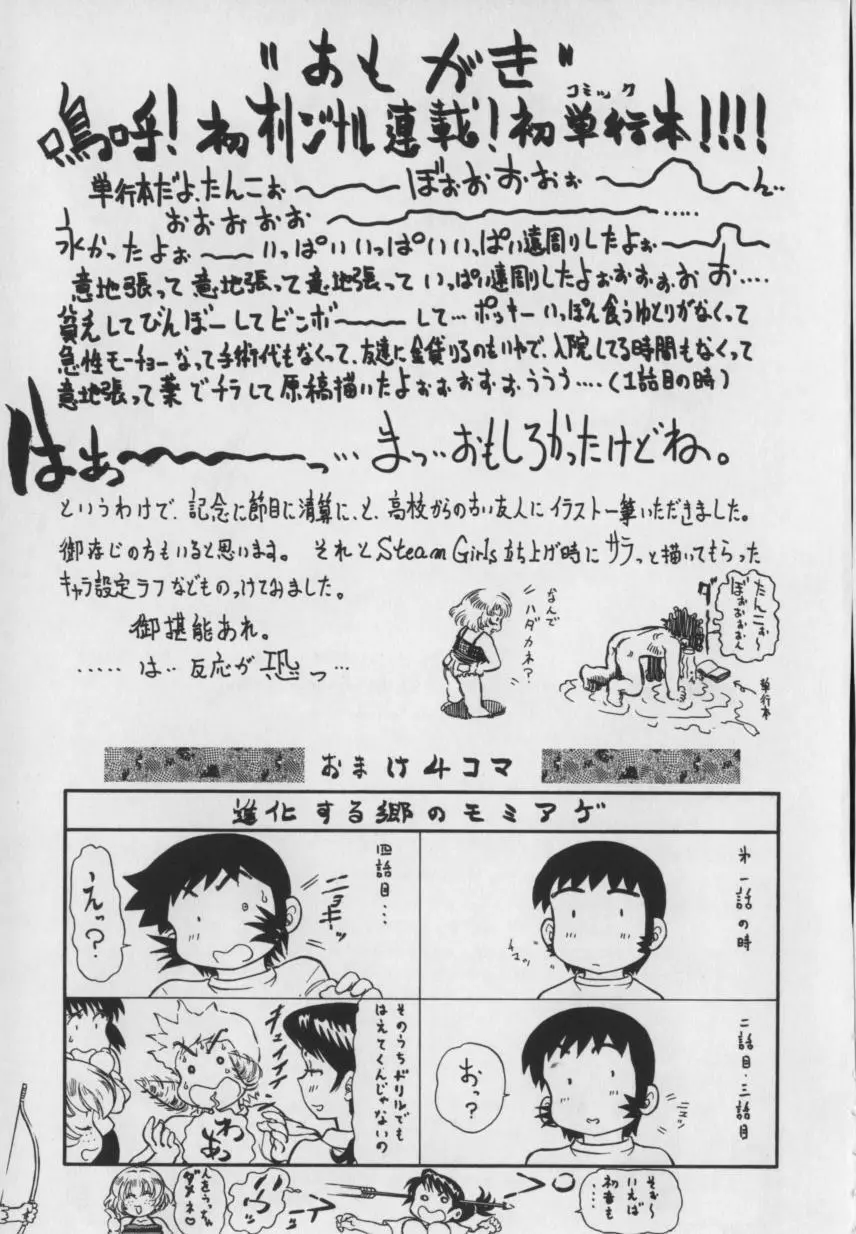 "あもがき"
嗚呼！初オリジナル連載！初単行本！！！！
コミック
単行本だよ、たんこぉ〜ぼぉぉおぉぉ〜ん‥
おぉぉぉぉぉ〜‥‥‥
永かったよぉ〜いっぱいいっぱいいっぱい遠周りしたよぉ〜
意地張って意地張って意地張っていっぱい遠周りしたよぉぉぉぉぉお‥‥
貧乏してびんぼーしてビンボ〜して…ポッキーいっぽん食うゆとりがなくって
急性モーチョーなって手術代もなくって、友達に金貸りるのもいやで、入院してる時間もなくって
意地張って薬でチラして原稿描いたよぉぉぉぉぉううう‥‥（1話目の時）
はあっ〜っ…まっ…おもしろかったけどね。
というわけで、記念に節目に清算に、と、高校からの古い友人にイラスト一筆いただきました。
御存じの方もいると思います。それとSteam Girls立ち上げ時にサラっと描いてもらった
キャラ設定ラフなどものっけておみました。
御堪能あれ。
‥‥‥は‥反応が恐っ…
なんで
ハダカネ？
たんこぉ〜
ぼぉぉぉぉん
ダー
単行本
おまけ4コマ
進化する郷のモミアゲ
オ一話の時
チョッ
二話目・三話目
おっ？
ニョッ
四話目…
ニョキーッ
えっ？
そのうちドリルでも
はえてくんじゃないの
キュイイイン
わあっ
そぉ〜
いえば
初音も
…
人をうっちゃ
ダメネ♡